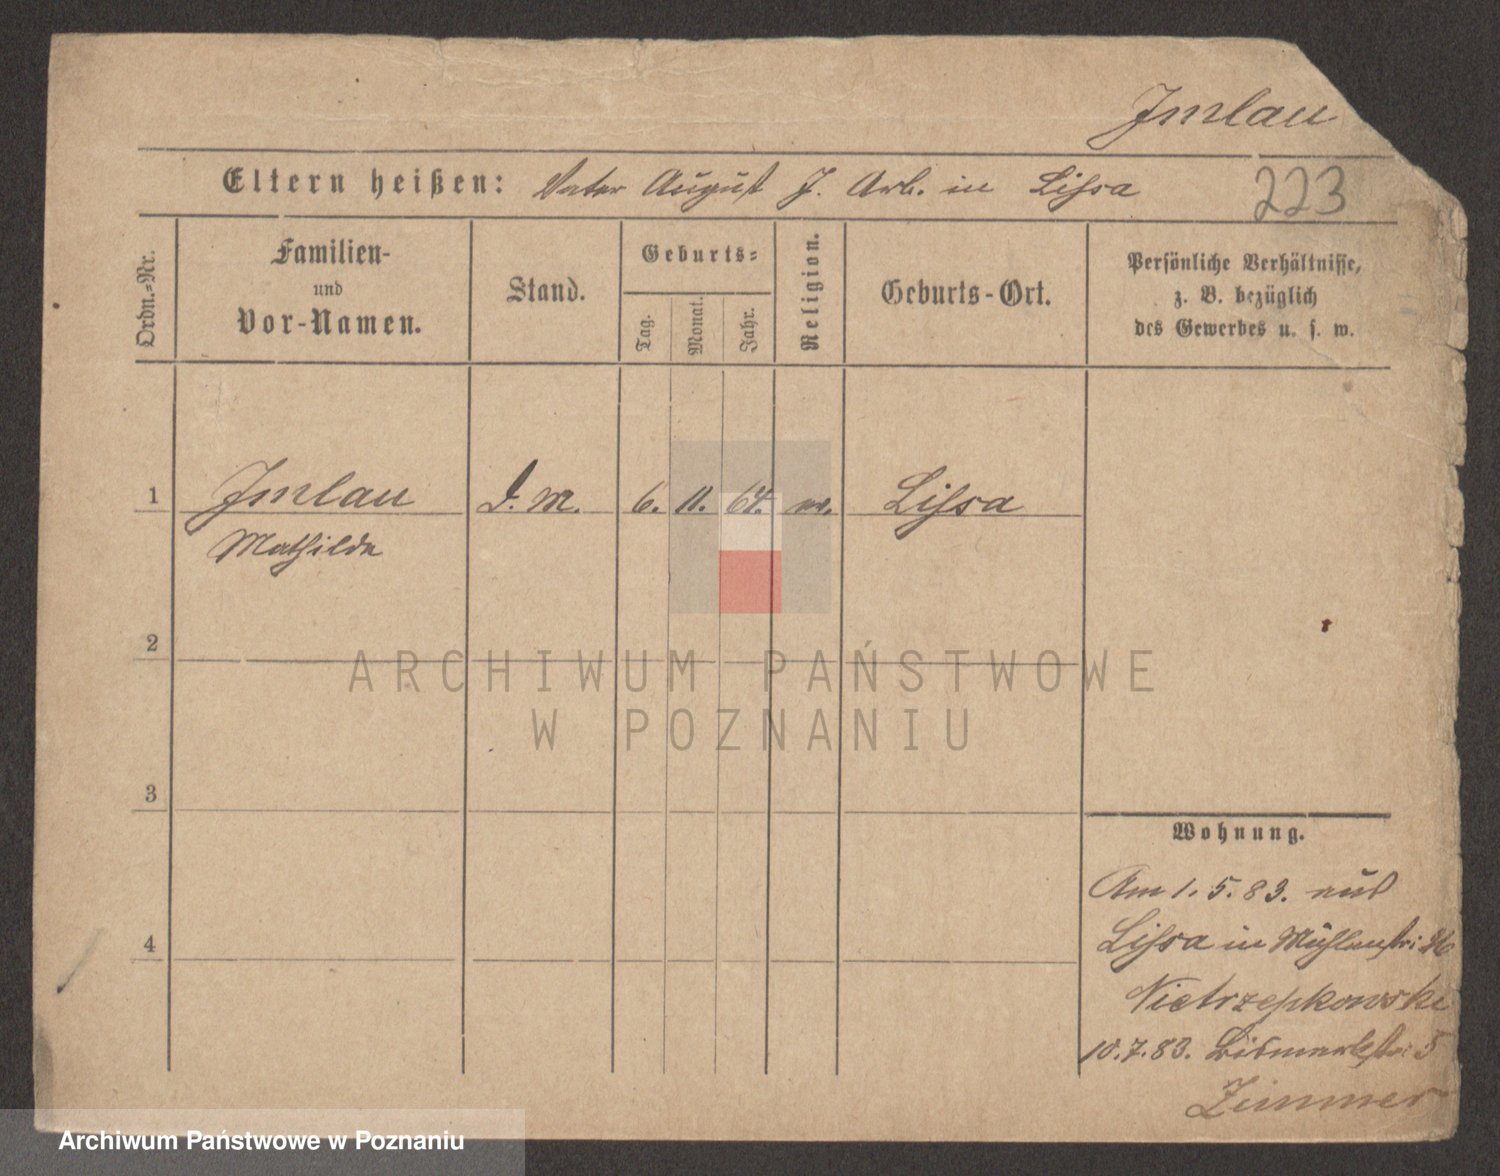 Imlau
Eltern heißen: Vater August J. Arb. in Lissa
223
Ordn.-Nr.
Familien-
und
Vor-Namen.
Stand.
Geburts-
Tag.
Monat.
Jahr.
Religion.
Geburts-Ort.
Persönliche Verhältnisse,
z. B. bezüglich
des Gewerbes u. s. w.
1 Imlau D. M. 6. 11. 64. ev. Lissa
Mathilde
2
ARCHIWUM PAŃSTWOWE
W POZNANIU
3
Wohnung.
Am 1. 5. 83. aus
4
Lissa in Mühlenstr:
10.7.83. Bismarkstr: 5
Zimmer
Archiwum Państwowe w Poznaniu